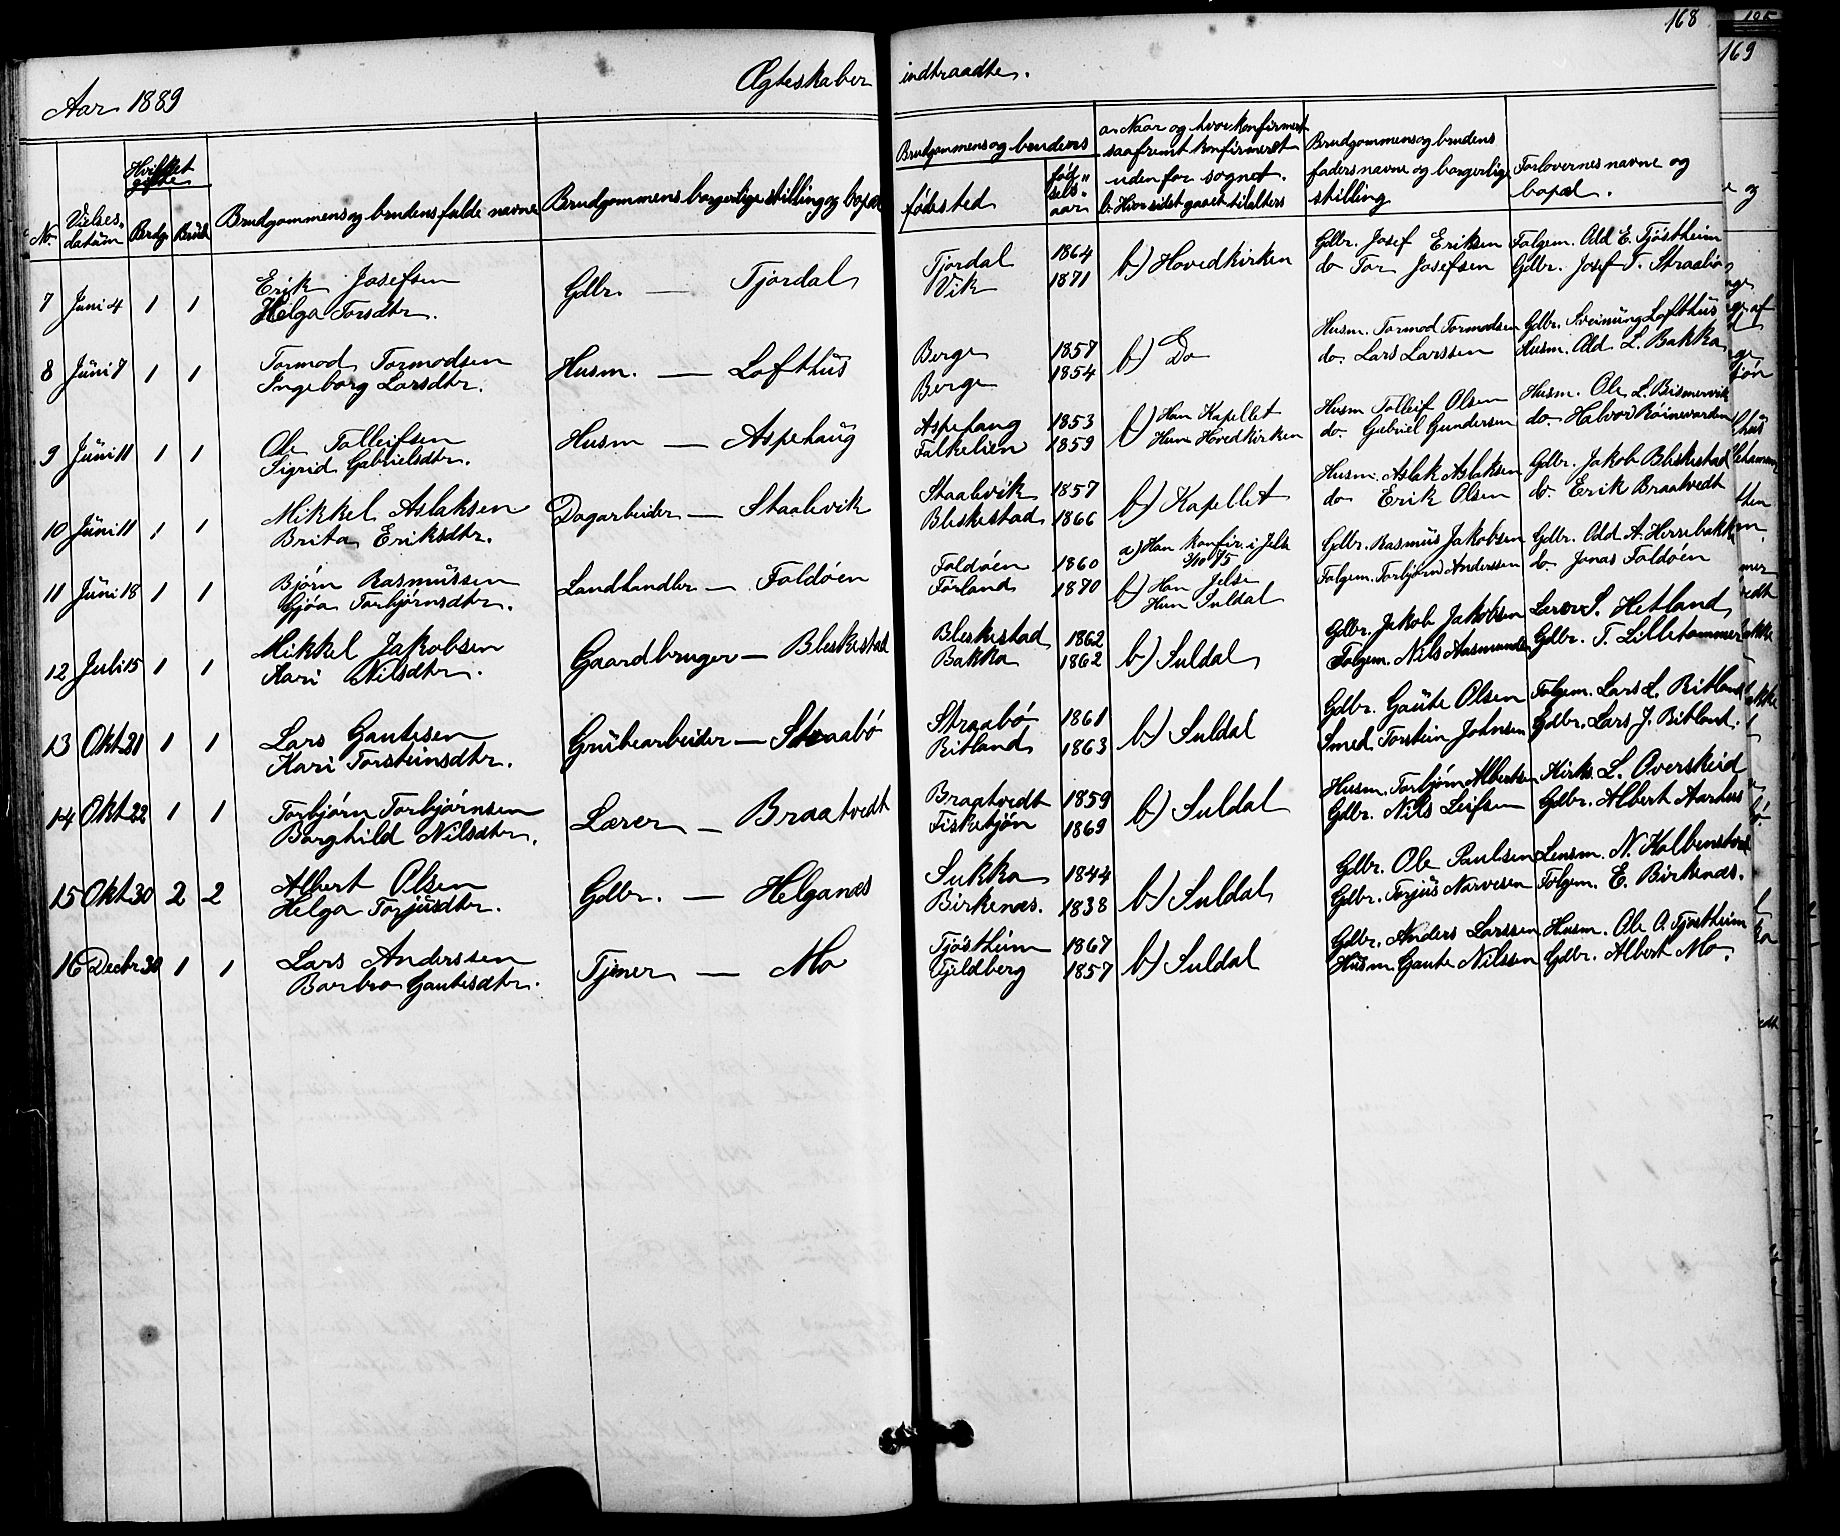 168
Aar 1889
Ægteskaber indtraadte.
No.
Vielses-datum
Hvilket gifte
Brdg. Brud
Brudgommens og brudens fulde navne
Brudgommens borgerlige stilling og bopæl
Brudgommens og brudens
fødested
fødselsaar
a. Naar og hvor konfirmert saafremt konfirmeret uden for sognet.
b. Hvor sidst gaaet til alters
Brudgommens og brudens faders navne og borgerlige stilling
Forlovernes navne og bopæl.
7 Juni 4 1 1 Erik Josefsen Gdbr. — Tjordal Tjordal 1864 b) Hovedkirken Gdbr. Josef Eriksen Folgem. Odd E. Tjöstheim
Helga Torsdtr. Vik 1871 do Tor Josefsen Gdbr. Josef T. Straabö
8 Juni 7 1 1 Tormod Tormodsen Husm. — Lofthus Berge 1857 b) Do Husm. Tormod Tormodsen Gdbr. Sveinung Lofthus
Ingeborg Larsdtr. Berge 1854 do. Lars Larssen Husm. Odd L. Bakka
9 Juni 11 1 1 Ole Tolleifsen Husm — Aspehaug Aspehaug 1853 b) Han Kapellet Husm Tolleif Olsen Husm. Ole L.
Sigrid Gabrielsdtr. Falkelien 1859 Hun Hovedkirken do. Gabriel Gundersen do. Halvor Röinevarden
10 Juni 11 1 1 Mikkel Aslaksen Dagarbeider — Staalevik Staalevik 1857 b) Kapellet Husm. Aslak Aslaksen Gdbr. Jakob Bleskestad
Brita Eriksdtr. Bleskestad 1866 do Erik Olsen do. Erik Braatvedt
11 Juni 18 1 1 Bjørn Rasmussen Landhandler — Foldöen Foldöen 1860 a) Han konfir. i Jelse 3/10 75 Gdbr. Rasmus Jakobsen Gdbr. Odd A. Herrebakke
Gjöa Torbjørnsdtr. Förland 1870 b) Han Jelse Hun Suldal Folgem. Torbjørn Anderssen do. Jonas Foldöen
12 Juli 15 1 1 Mikkel Jakobsen Gaardbruger — Bleskestad Bleskestad 1862 b) Suldal Gdbr. Jakob Jakobsen Lærer S. Hetland
Kari Nilsdtr. Bakka 1862 Folgem. Nils Aasmundsen Gdbr. T. Lillehammer
13 Okt 21 1 1 Lars Gautesen Grubearbeider — Straabö Straabö 1861 b) Suldal Gdbr. Gaute Olsen Folgem. Lars L. Ritland
Kari Torsteinsdtr. Ritland 1863 Smed Torstein Johnsen Gdbr. Lars J. Ritland.
14 Okt 22 1 1 Torbjörn Torbjørnsen Lærer — Braatvedt Braatvedt 1859 b) Suldal Husm. Torbjørn Albertsen Kirks. L. Overskeid
Borghild Nilsdtr. Fisketjön 1869 Gdbr. Nils Leifsen Gdbr. Albert Aarhus
15 Okt 30 2 2 Albert Olsen Gdbr. — Helganæs Sukka 1844 b) Suldal Gdbr. Ole Paulsen Lensm. N. Kolbenstvedt
Helga Torjusdtr. Birkenæs. 1838 Gdbr. Torjus Narvesen Folgem. E. Birkenæs.
16 Decbr 30 1 1 Lars Anderssen Tjener — Mo Tjöstheim 1867 b) Suldal Gdbr. Anders Larssen Husm. Ole O. Tjöstheim
Barbro Gautesdtr. Gjildberg 1857 Husm Gaute Nilssen Gdbr. Albert Mo.
169